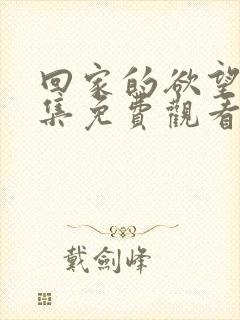 回家的欲望
集免費觀看
戴劍峰